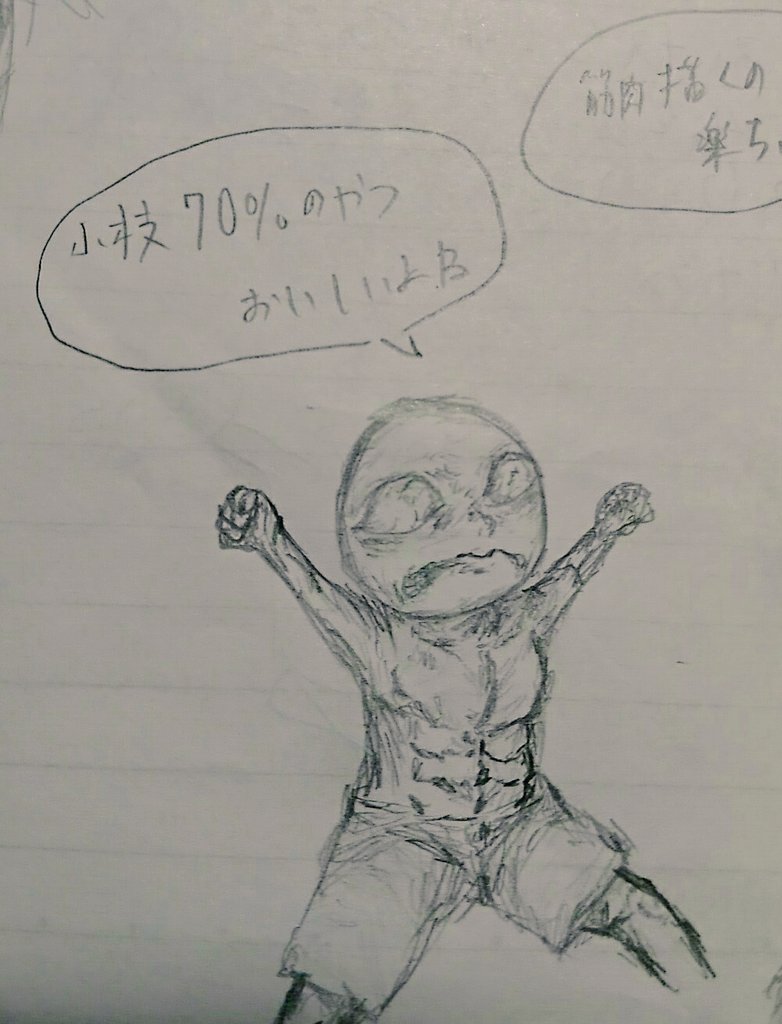 小枝70%のやつ
おいしいよね
筋肉描くの
楽ち